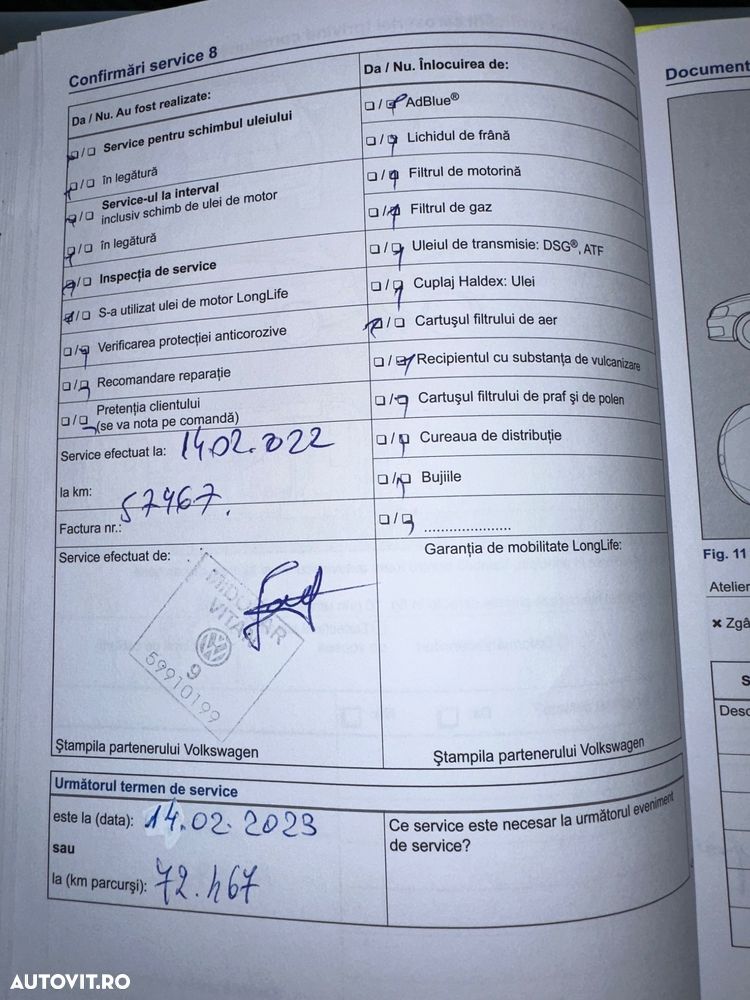 Confirmări service 8
Da / Nu. Au fost realizate:
☐/☐ Service pentru schimbul uleiului
☐/☐ în legătură
☐/☐ Service-ul la interval
inclusiv schimb de ulei de motor
☐/☐ în legătură
☐/☐ Inspecția de service
☐/☐ S-a utilizat ulei de motor LongLife
☐/☐ Verificarea protecției anticorozive
☐/☐ Recomandare reparație
☐/☐ Pretenția clientului
(se va nota pe comandă)
Service efectuat la: 14.02.2022
la km: 57467.
Factura nr.:
Service efectuat de:
MIDOCAR
VITAN
9
59910199
Ștampila partenerului Volkswagen
Da / Nu. Înlocuirea de:
☐/☐ AdBlue®
☐/☐ Lichidul de frână
☐/☐ Filtrul de motorină
☐/☐ Filtrul de gaz
☐/☐ Uleiul de transmisie: DSG®, ATF
☐/☐ Cuplaj Haldex: Ulei
☐/☐ Cartușul filtrului de aer
☐/☐ Recipientul cu substanța de vulcanizare
☐/☐ Cartușul filtrului de praf și de polen
☐/☐ Cureaua de distribuție
☐/☐ Bujiile
☐/☐ .....................
Garanția de mobilitate LongLife:
Ștampila partenerului Volkswagen
Următorul termen de service
este la (data): 14.02.2023
sau
la (km parcurși): 72.467
Ce service este necesar la următorul eveniment
de service?
Document
Fig. 11
Atelier
✖ Zgâ
S
Desc
AUTOVIT.RO